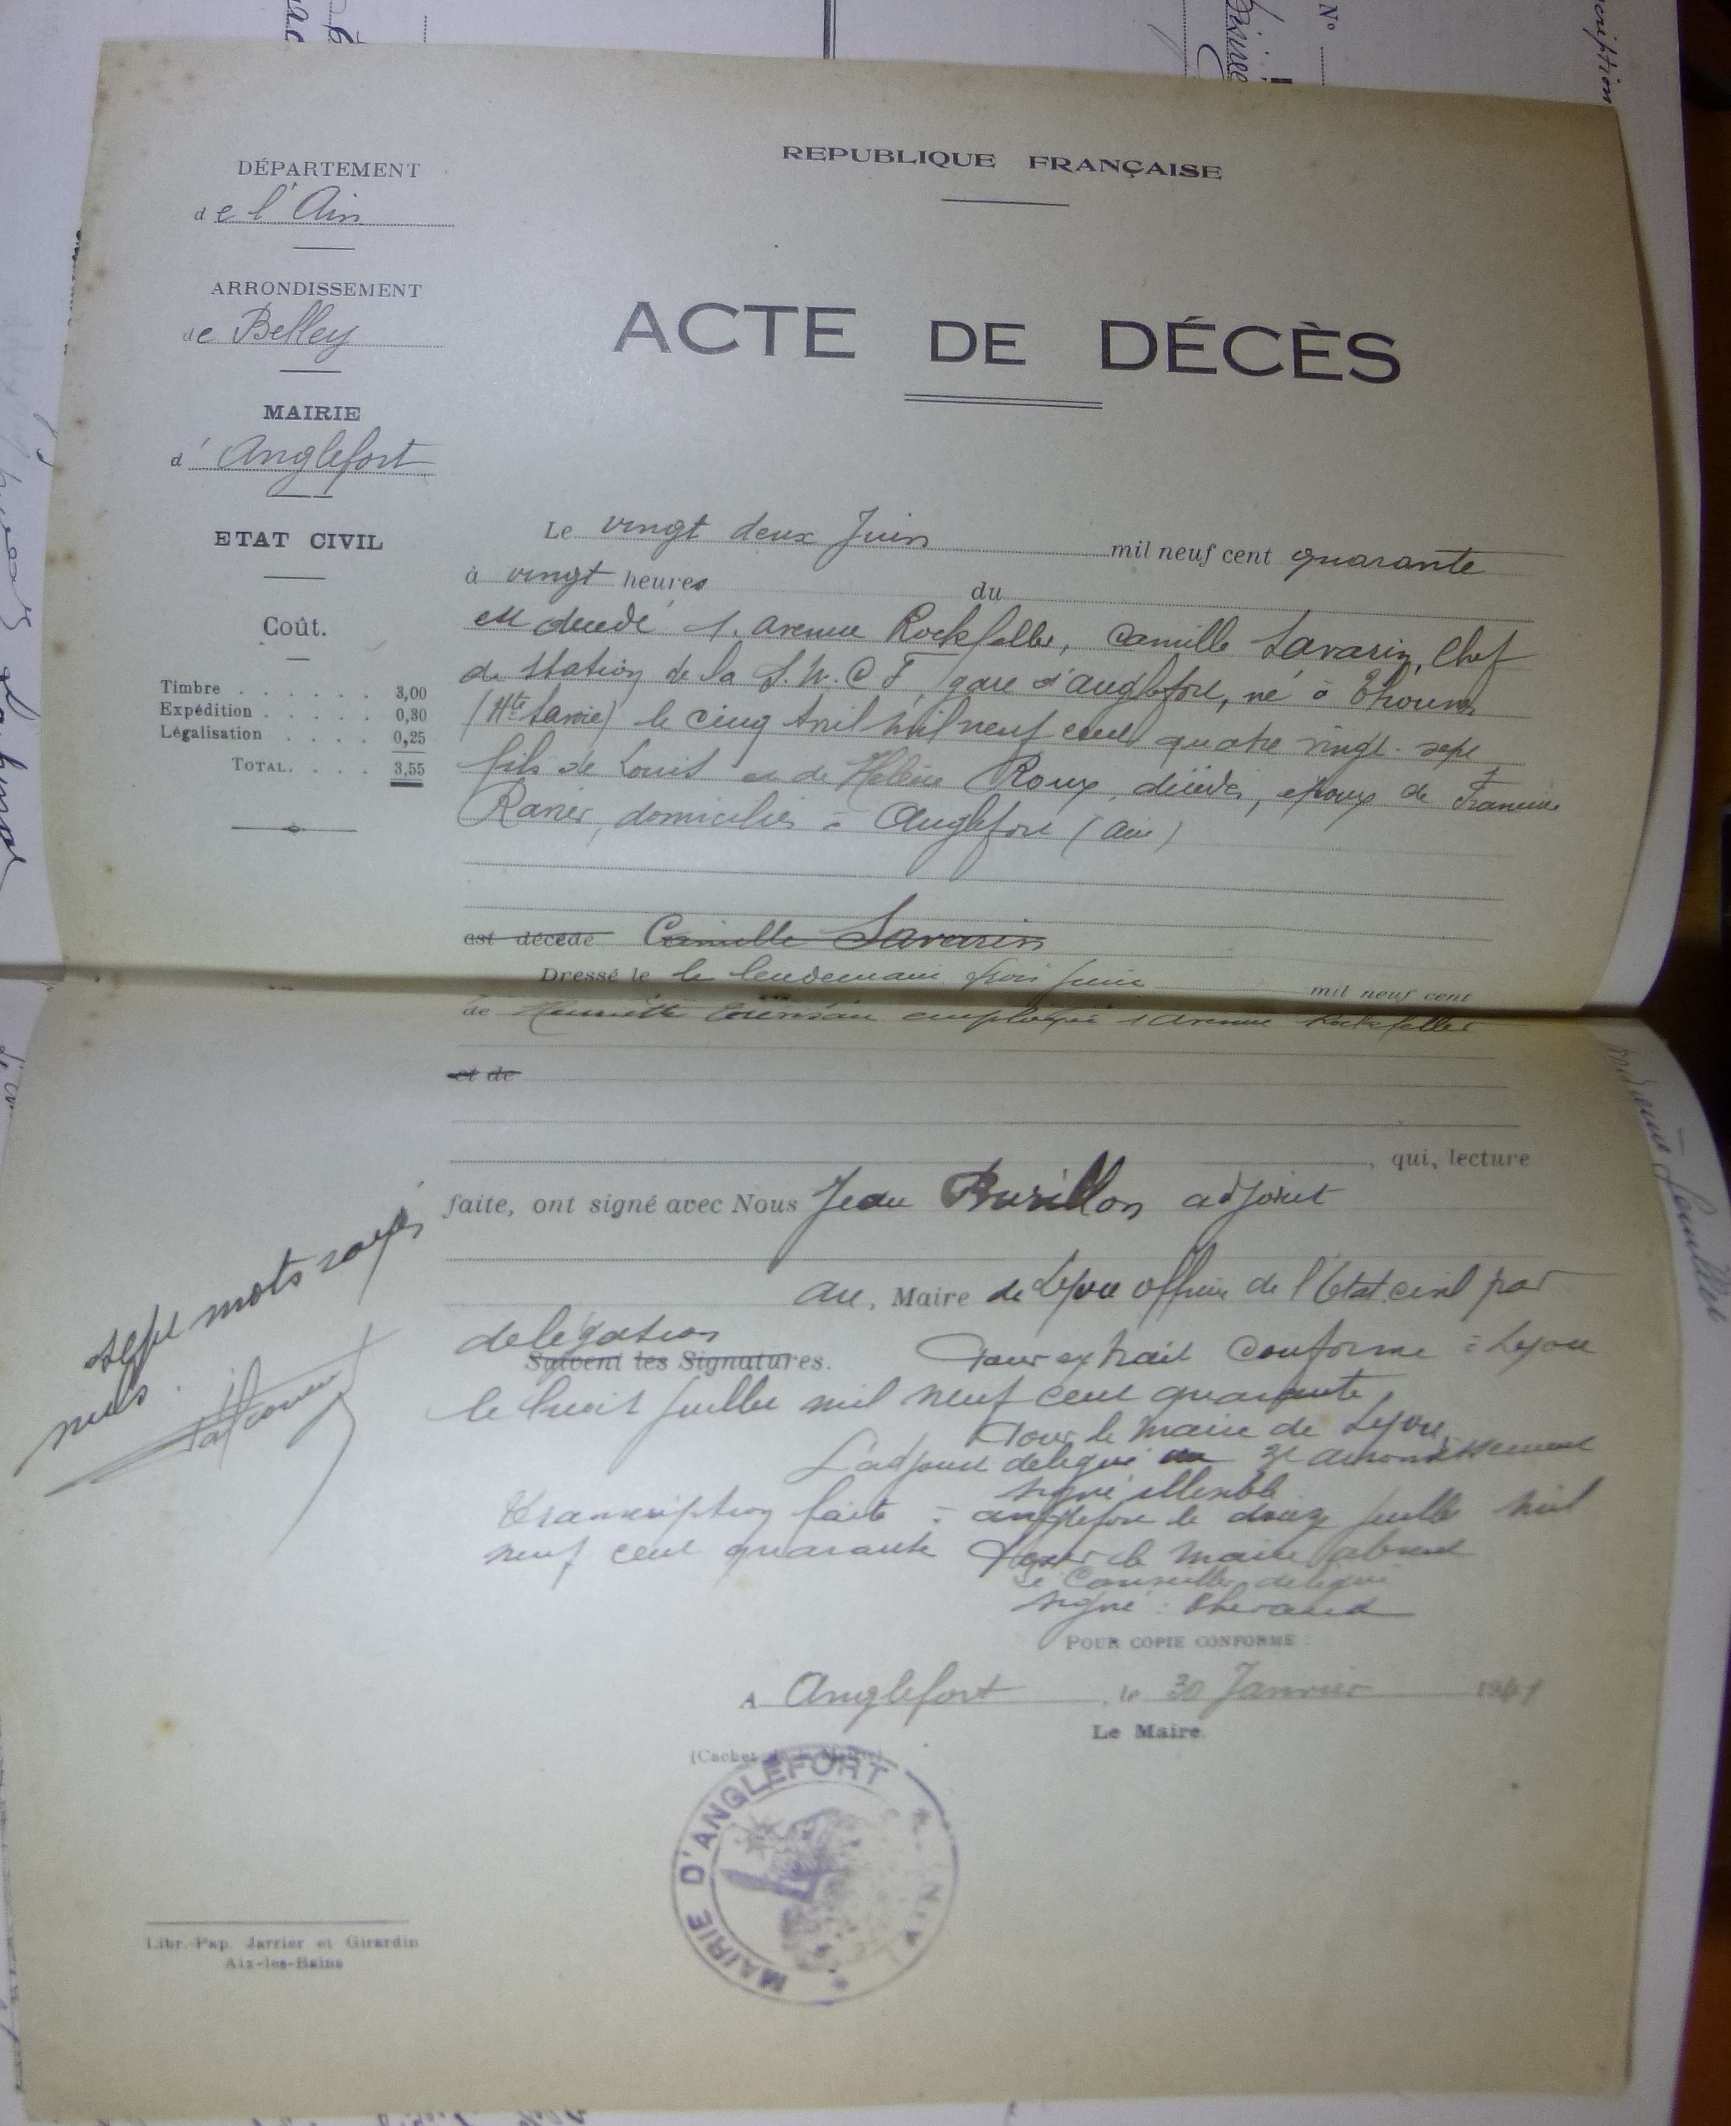 RÉPUBLIQUE FRANÇAISE
DÉPARTEMENT
de l'Ain
ARRONDISSEMENT
de Belley
MAIRIE
d' Anglefort
ETAT CIVIL
Coût.
Timbre . . . . . . 3,00
Expédition . . . . . 0,30
Légalisation . . . . 0,25
TOTAL. . . . 3,55
ACTE DE DÉCÈS
Le vingt deux Juin mil neuf cent quarante
à vingt heures du
est décédé 1. avenue Rockfeller, Camille Savarin, Chef
de station de la S.N.C.F, gare d'anglefort, né à Thounes
(Hte Savoie) le cinq Avril mil neuf cent quatre vingt-sept
fils de Louis et de Hélène Roux, décédés, époux de Francine
Ravier, domicilié à Anglefort (Ain)
est décédé Camille Savarin
Dressé le le lendemain trois juin mil neuf cent
de Henriette employée 1 Avenue Rockfeller
et de
, qui, lecture
faite, ont signé avec Nous Jean Burillon adjoint
au, Maire de Lyon officier de l'Etat civil par
délégation
Suivent les Signatures. Pour extrait conforme à Lyon
le huit juillet mil neuf cent quarante
Pour le Maire de Lyon
L'adjoint délégué 3e arrondissement
signé illisible
Transcription faite à anglefort le douze juillet mil
neuf cent quarante Pour le Maire absent
le Conseiller délégué
signé :
sept mots rayés
nuls.
POUR COPIE CONFORME :
A Anglefort, le 30 Janvier 1941
Le Maire.
(Cachet de la Mairie)
MAIRIE D'ANGLEFORT
Libr.-Pap. Jarrier et Girardin
Aix-les-Bains